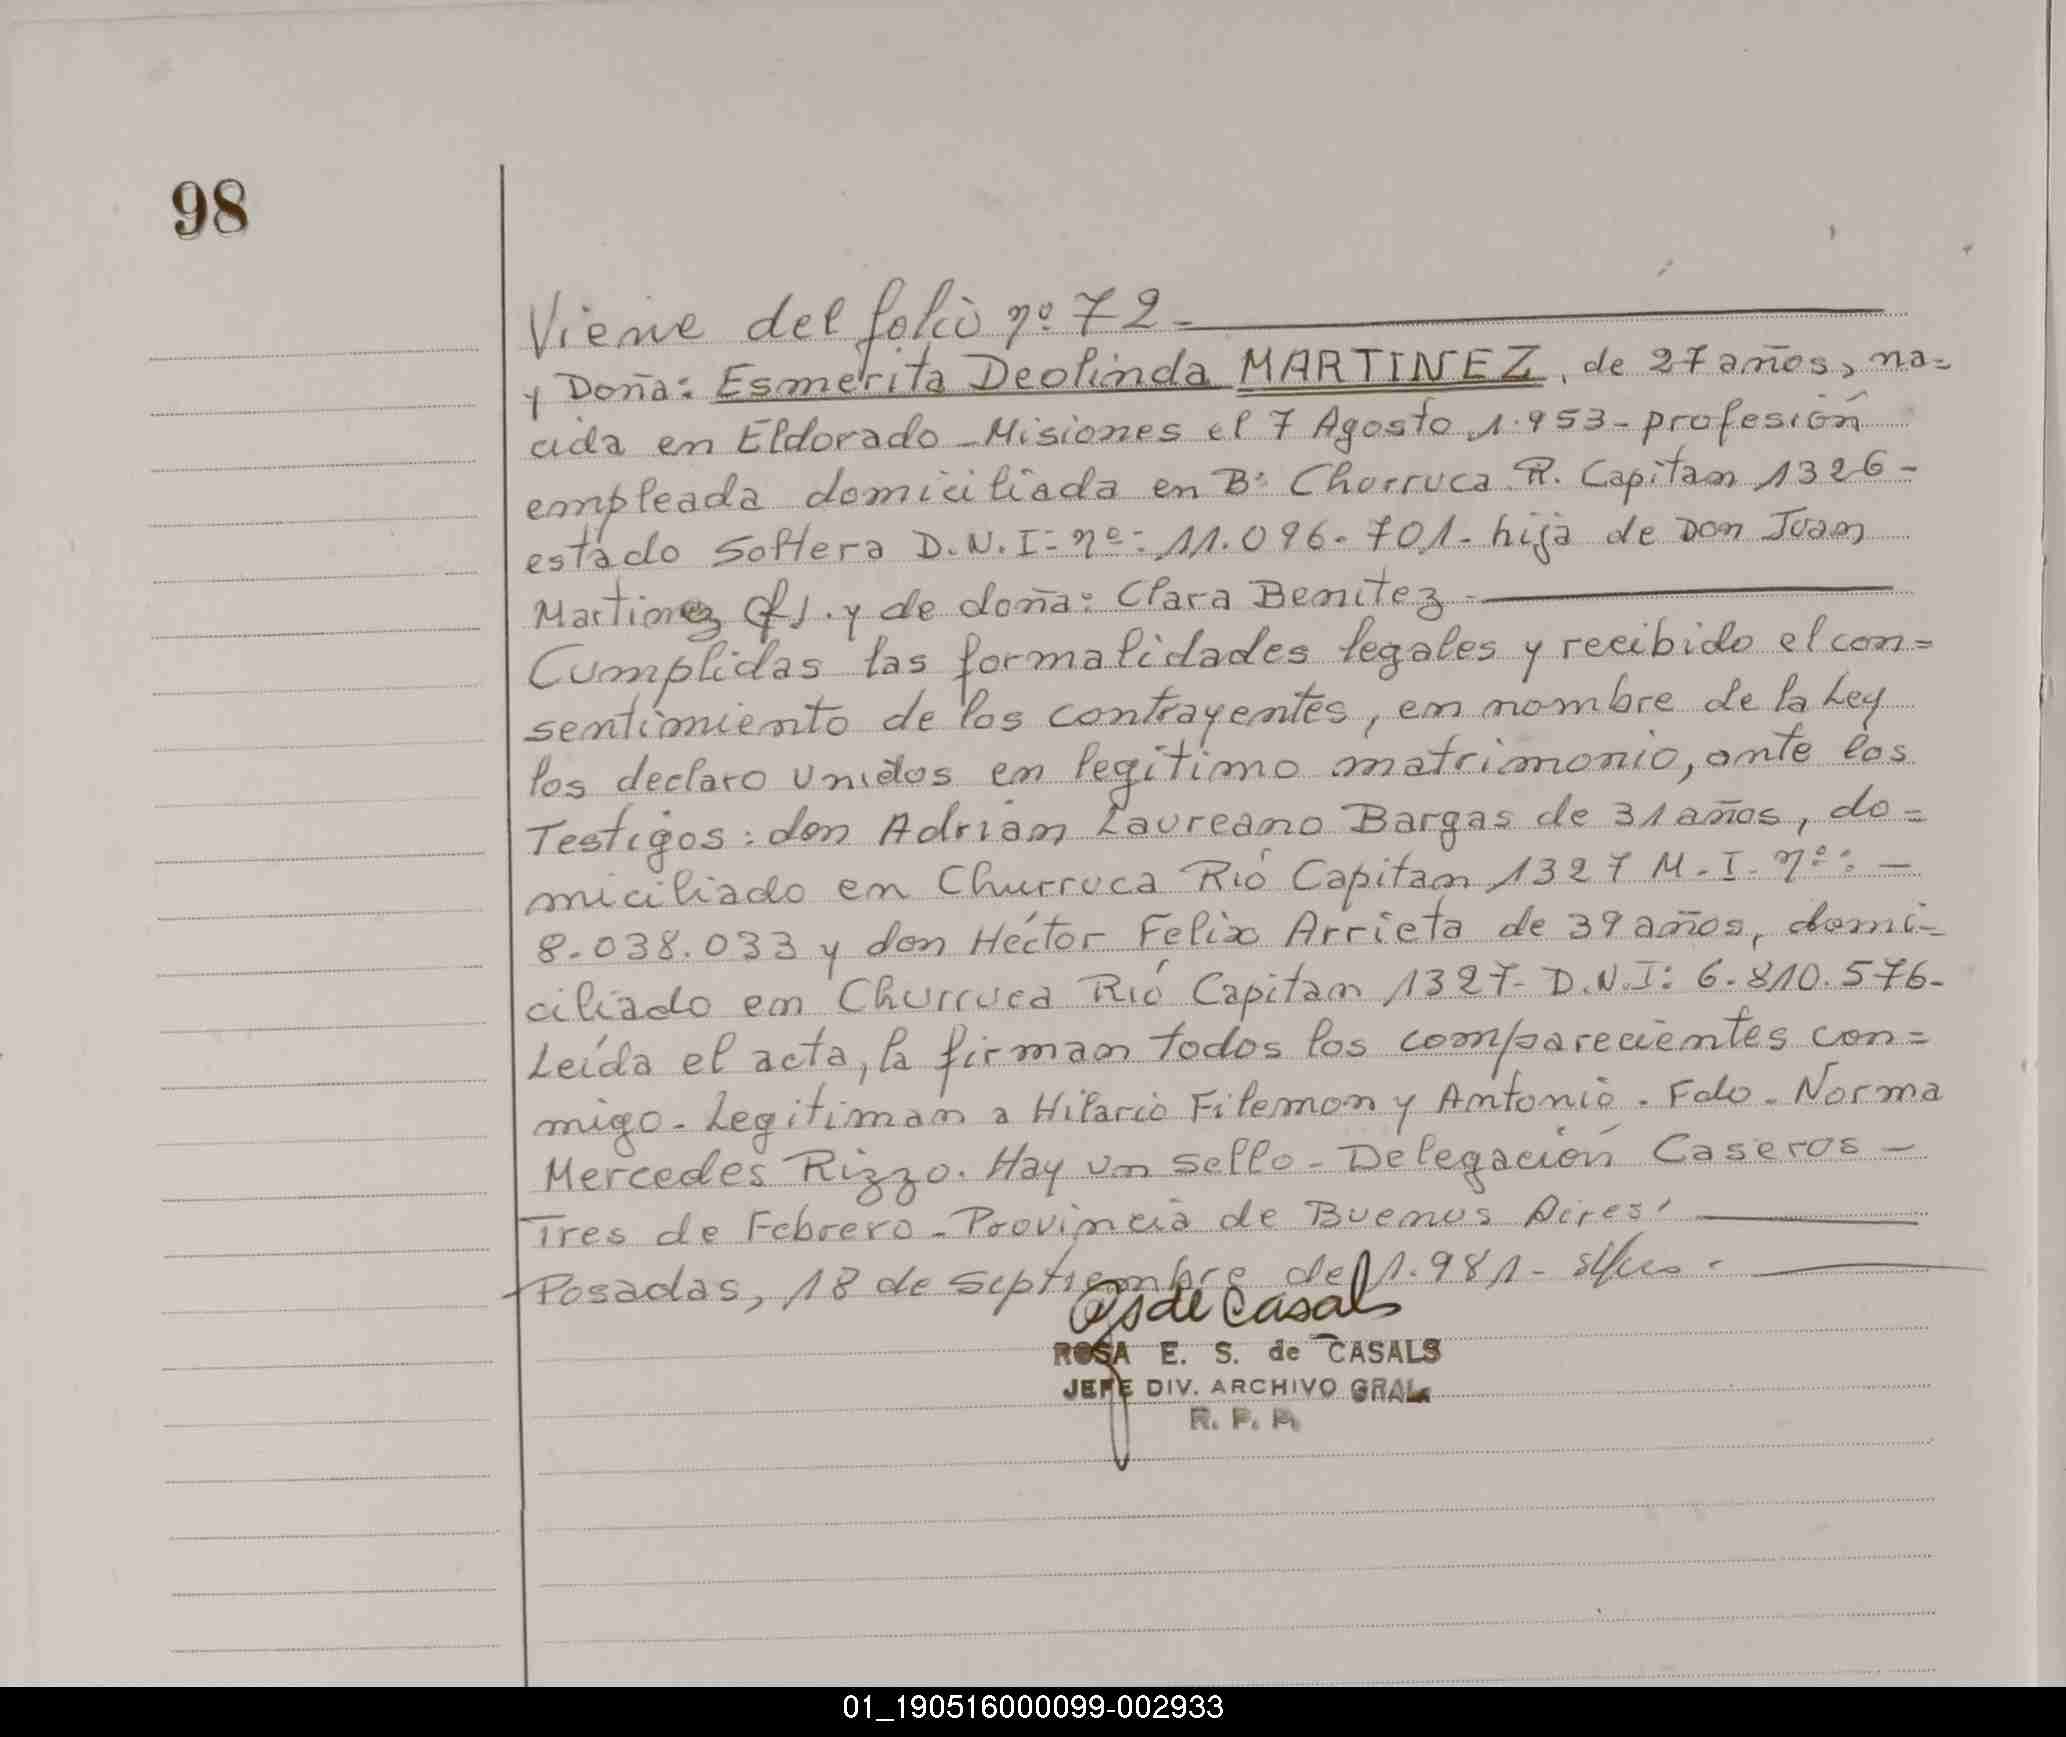 98
Viene del folio nº 72-
y Doña: Esmerita Deolinda MARTINEZ, de 27 años, na=
cida en Eldorado - Misiones el 7 Agosto 1.953 - profesión
empleada domiciliada en Bº Churruca R. Capitan 1326-
estado Soltera D.N.I= nº= 11.096-701- hija de Don Juan
Martinez (f). y de doña: Clara Benitez-
Cumplidas las formalidades legales y recibido el con=
sentimiento de los contrayentes, en nombre de la Ley
los declaro unidos en legitimo matrimonio, ante los
Testigos: don Adrian Laureano Bargas de 31 años, do=
miciliado en Churruca Rió Capitan 1327 M.I. nº: -
8.038.033 y don Héctor Felix Arrieta de 39 años, domi-
ciliado en Churruca Rió Capitan 1327- D.N.I: 6.810.576-
Leída el acta, la firman todos los comparecientes con=
migo- Legitiman a Hilario Filemon y Antonio. Fdo. Norma
Mercedes Rizzo. Hay un sello - Delegación Caseros -
Tres de Febrero - Provincia de Buenos Aires.
Posadas, 18 de Septiembre de 1.981-
de Casals
ROSA E. S. de CASALS
JEFE DIV. ARCHIVO GRAL.
R. P. P.
01_190516000099-002933